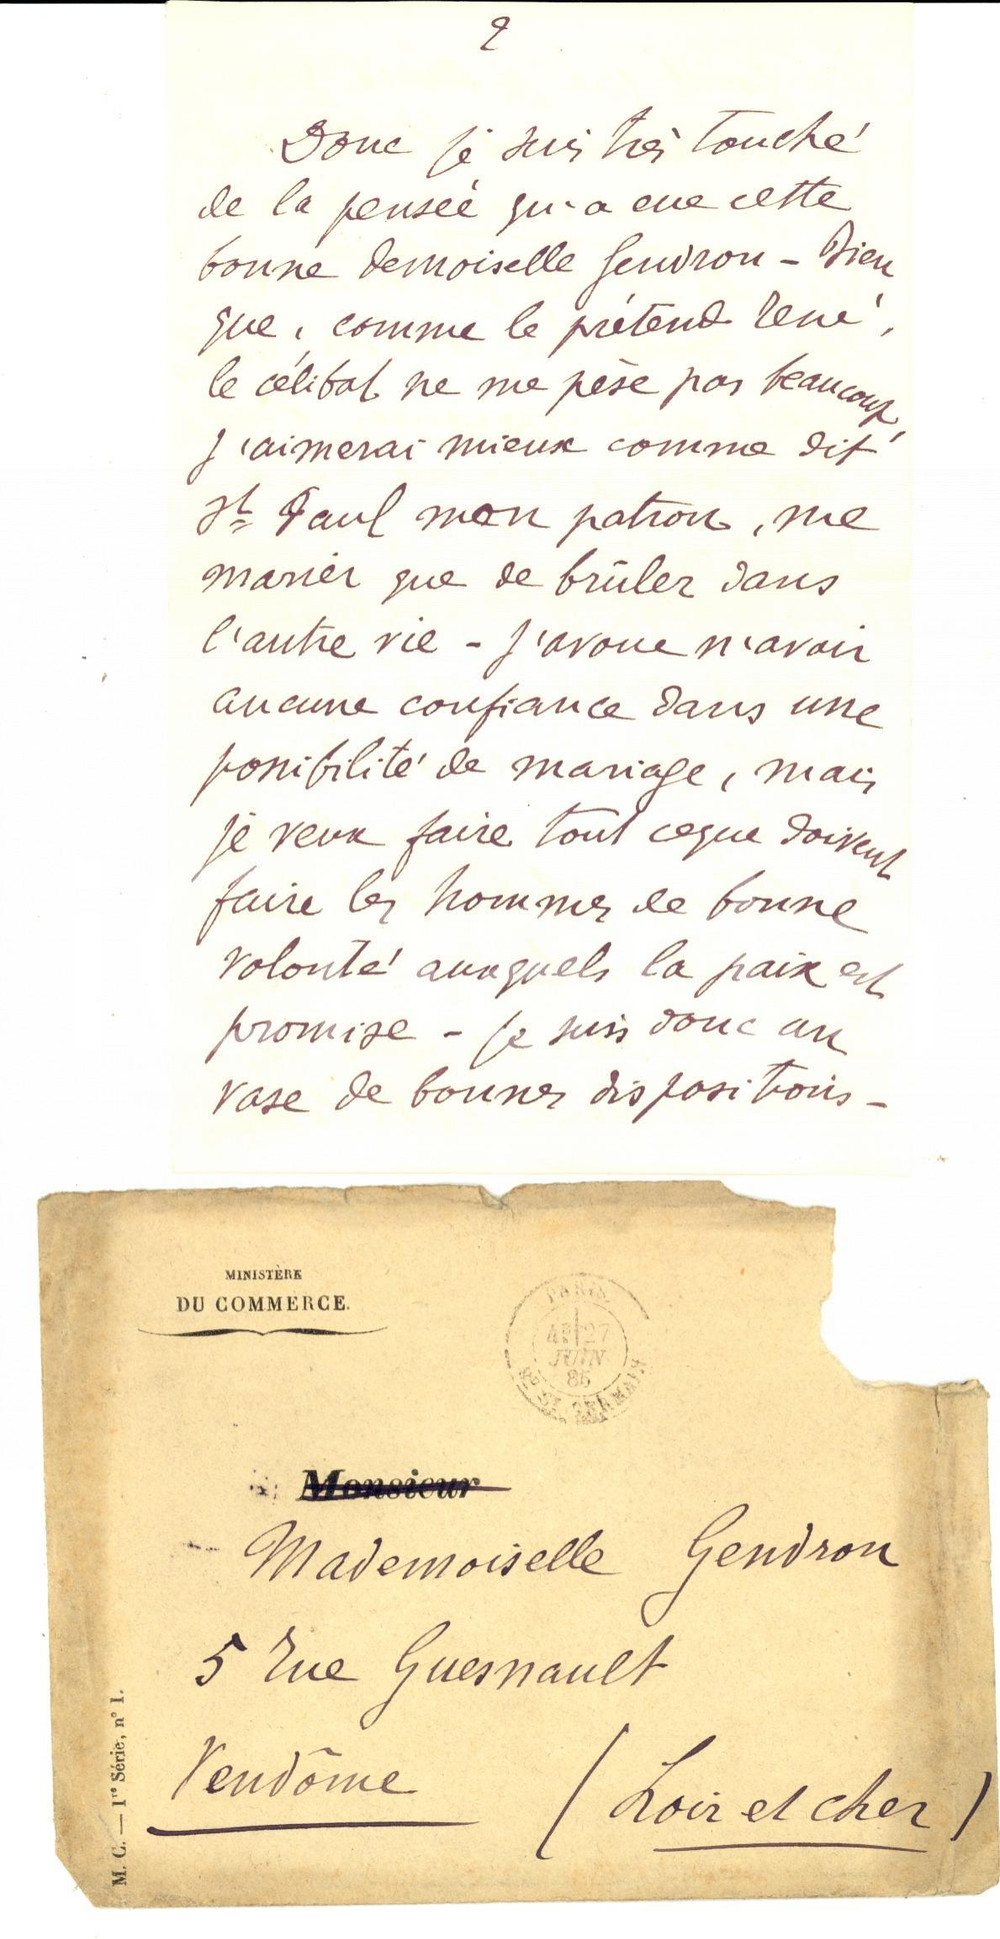 2
Donc je suis très touché
de la pensée qu'a eue cette
bonne demoiselle Gendron - Bien
que, comme le prétend René,
le célibat ne me pèse pas beaucoup,
j'aimerai mieux comme dit
St Paul mon patron, me
marier que de brûler dans
l'autre vie - J'avoue n'avoir
aucune confiance dans une
possibilité de mariage, mais
je veux faire tout ce que doivent
faire les hommes de bonne
volonté auxquels la paix est
promise - Je suis donc un
vase de bonnes dispositions -
MINISTÈRE
DU COMMERCE.
PARIS
4E 27
JUIN
85
Bd ST GERMAIN
Monsieur
Mademoiselle Gendron
5 rue Guesnault
Vendôme (Loir et cher)
M. C. — 1re Série, n° 1.